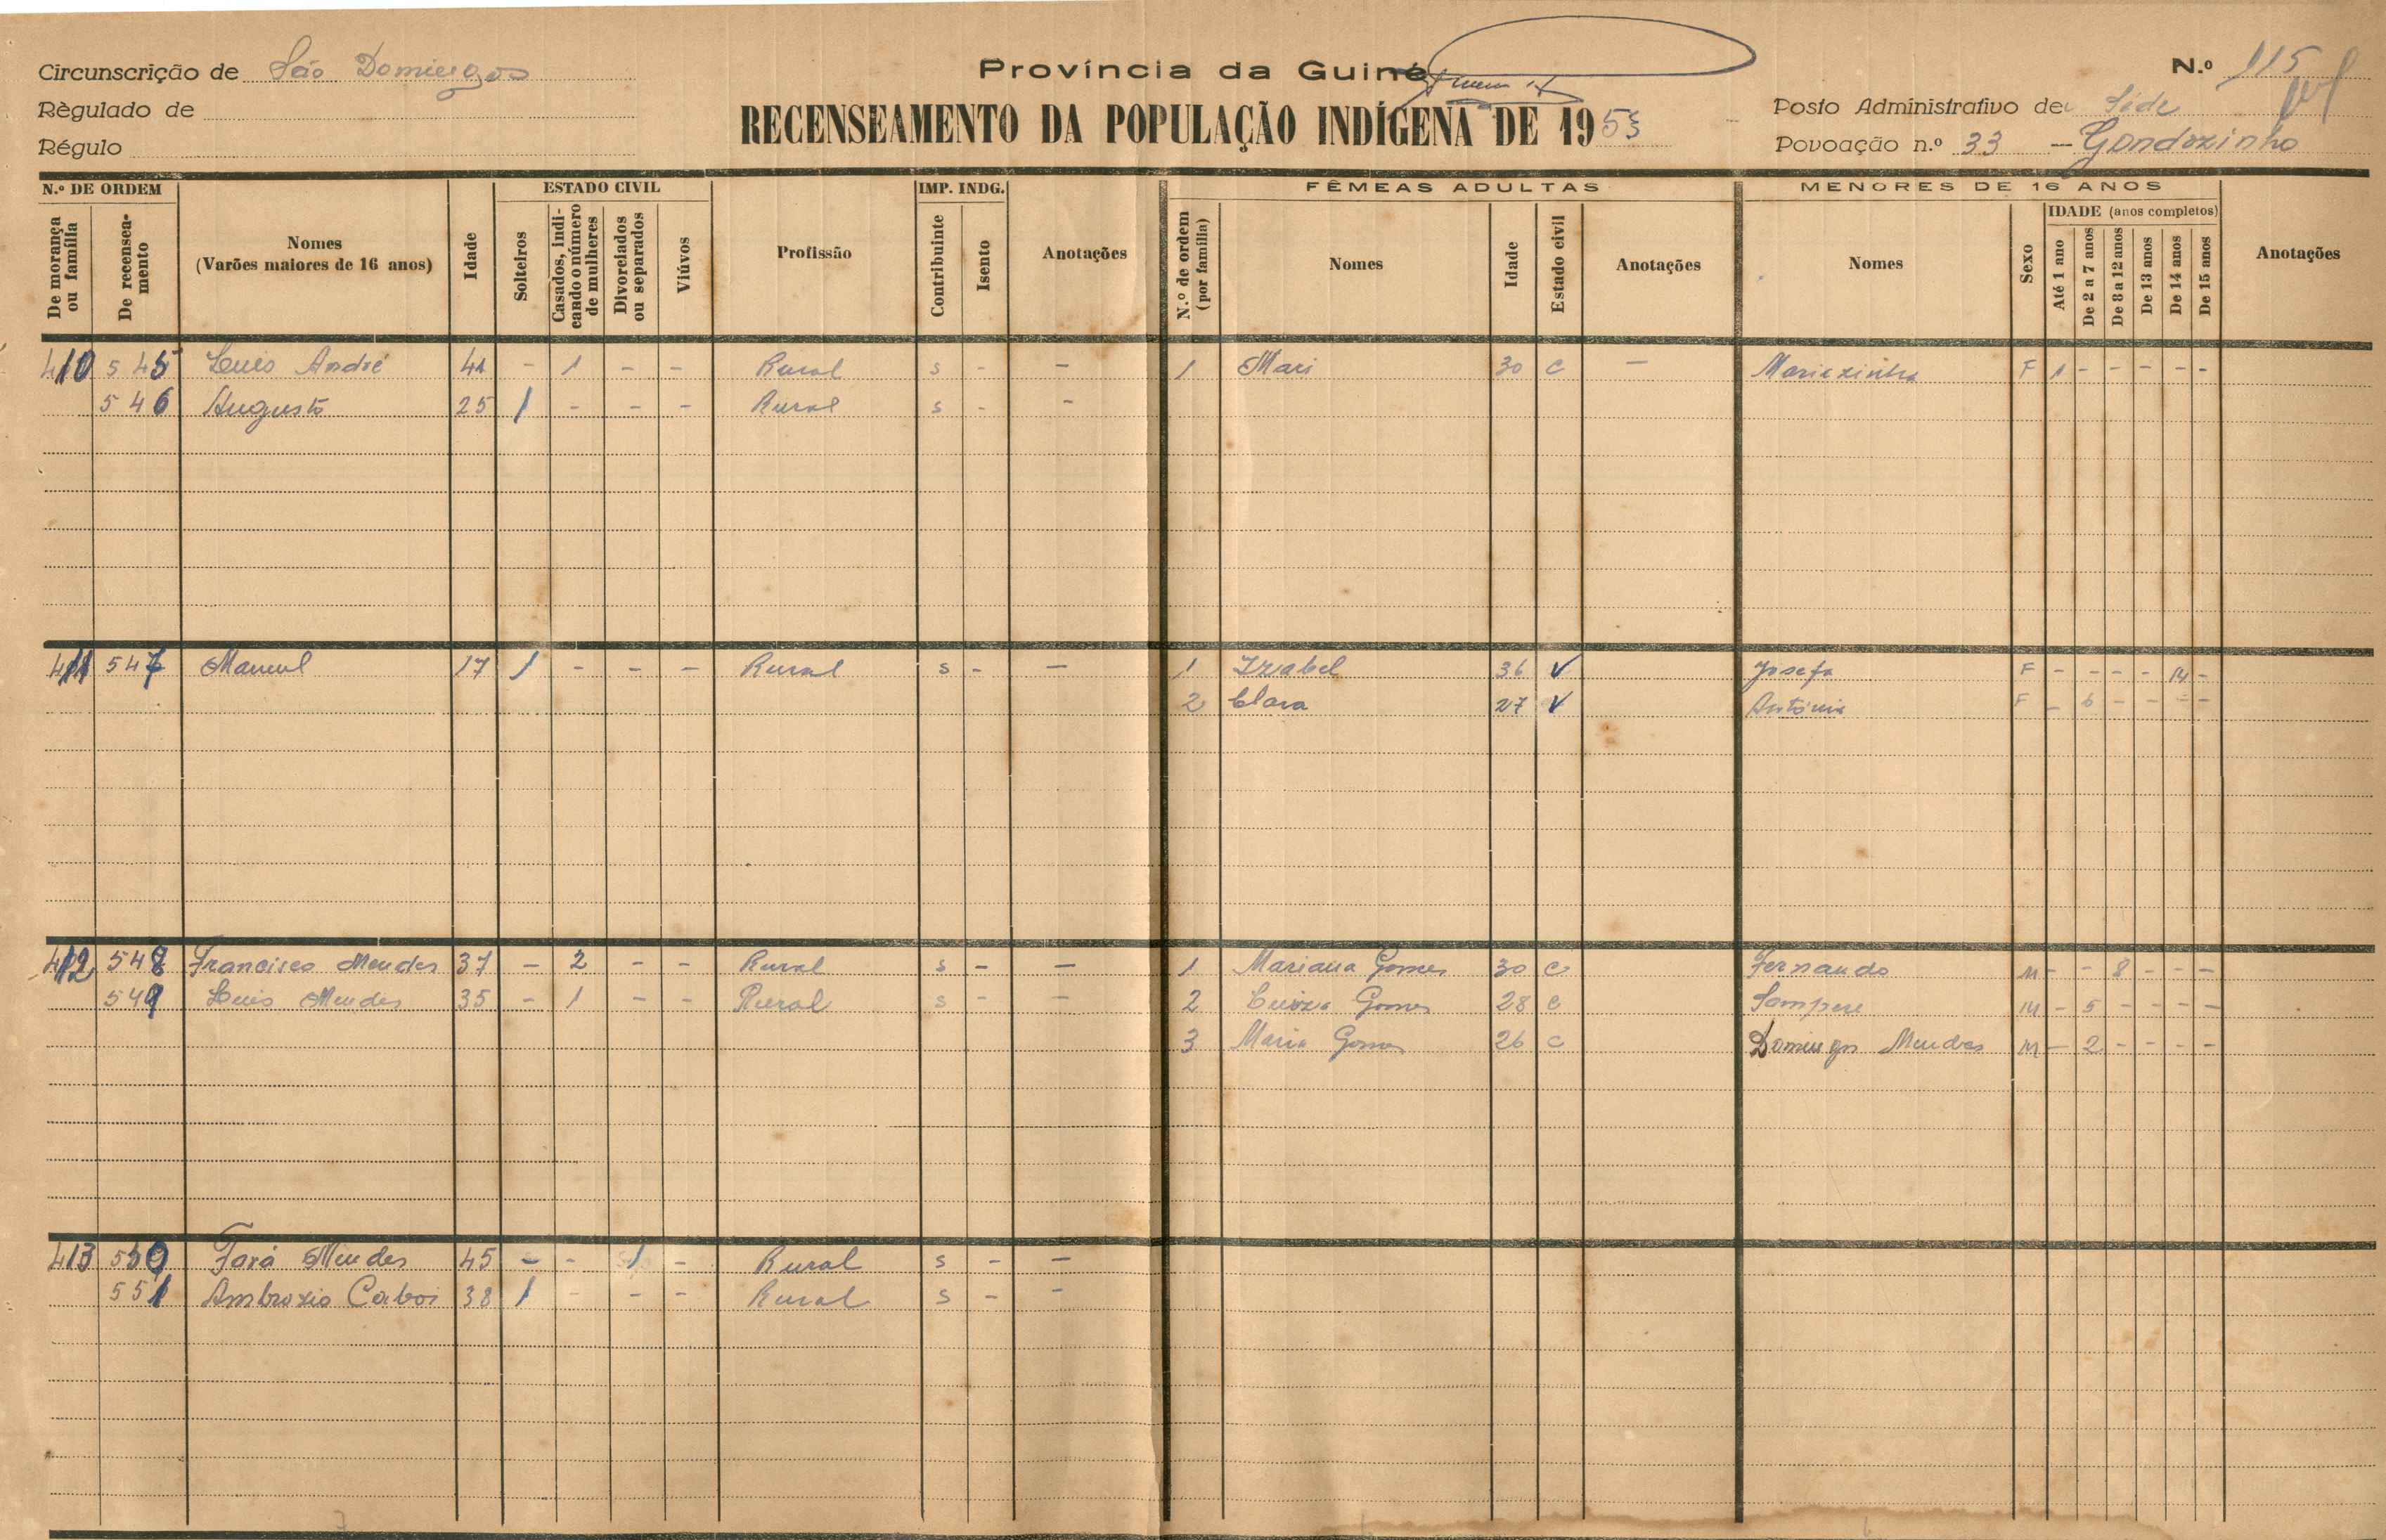 Circunscrição de São Domingos
Règulado de
Régulo
Província da Guiné
RECENSEAMENTO DA POPULAÇÃO INDÍGENA DE 1953
N.º 115
Posto Administrativo de Séde
Povoação n.º 33 – Gondozinho
N.º DE ORDEM
De morança ou família
De recenseamento
Nomes
(Varões maiores de 16 anos)
Idade
ESTADO CIVIL
Solteiros
Casados, indicando o número de mulheres
Divorciados ou separados
Viúvos
Profissão
IMP. INDG.
Contribuinte
Isento
Anotações
FÊMEAS ADULTAS
N.º de ordem (por família)
Nomes
Idade
Estado civil
Anotações
MENORES DE 16 ANOS
Nomes
Sexo
IDADE (anos completos)
Até 1 ano
De 2 a 7 anos
De 8 a 12 anos
De 13 anos
De 14 anos
De 15 anos
Anotações
410 545 Luis André 41 - 1 - - Rural s - - 1 Mari 30 C - Mariazinha F 1 - - - - -
546 Augusto 25 1 - - - Rural s - -
411 547 Manuel 17 1 - - - Rural s - - 1 Izabel 36 V Josefa F - - - - 14 -
2 Clara 27 V Antónia F - 6 - - - -
412 548 Francisco Mendes 37 - 2 - - Rural s - - 1 Mariana Gomes 30 C Fernando M - - 8 - - -
549 Luis Mendes 35 - 1 - - Rural s - - 2 Gomes 28 C Sampere M - 5 - - - -
3 Maria Gomes 26 C Domingos Mendes M - 2 - - - -
413 550 Fará Mendes 45 - - 1 - Rural s - -
551 Ambrozio Caboi 38 1 - - - Rural s - -